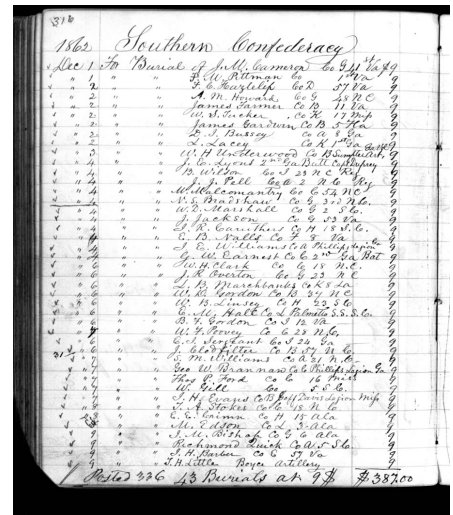 316
1862 Southern Confederacy
Dec 1 For Burial of J. M. Cameron Co G 41st Va $9
" 1 " " Pittman Co 1st Va 9
" 2 " " Co D 57 Va 9
" 2 " " A. M. Howard Co G 48 N C 9
" 2 " " James Farmer Co B 11 Va 9
" 2 " " W. S. Tucker Co K 17 Mip 9
" 2 " " James Gardwin Co B 5 9
" 2 " " Bussey Co A 8 Ga 9
" 2 " " L. Lacey Co K 1st Ga 9
" 3 " " W. H Underwood Co B Sumpter Art, 9
" 4 " " J. C. Lyons 2nd Ga Batt 9
" 4 " " B. Wilson Co I 23 N C Reg 9
" 4 " " J. J. Pell Co A 2 N C Reg 9
" 4 " " M. Malconantry Co G 54 N C 9
" 4 " " N. S. Bradshaw Co G 3rd N. C. 9
" 4 " " W. D. Marshall Co G 2 S. C. 9
" 4 " " J. Jackson Co G 53 Va 9
" 4 " " J R. Caruthers Co H 18 S. C. 9
" 4 " " E. B. Nalls Co F 8 Va 9
" 4 " " J. E. Williams Co A Phillips Legion 9
" 4 " " G. W. Earnest Co C 2nd Ga Bat 9
" 6 " " W. H. Clark Co G 18 N. C. 9
" 6 " " J. R Overton Co G 23 N C 9
" 6 " " L. B Marchbanks Co K 8 La 9
" 6 " " W. R. Gordon Co B 37 N C 9
" 6 " " W. B. Linsey Co H 23 S C 9
" 6 " " E. M. Hall Co L Palmetto S. S. S. C. 9
" 6 " " B. F. Gordon Co I 12 Va 9
" 6 " " W. F. Povey Co G 28 N. C. 9
" 6 " " E. J. Sergeant Co I 24 Ga 9
" 6 " " J. Clodfelter Co B 57 N. C. 9
" 7 " " S. M. Williams Co A 21 N. C. 9
" 7 " " Geo W. Brannan Co C Phillips Legion Ga 9
" 7 " " Thos P. Ford Co C 16 Miss 9
" 7 " " W. Gill Co 5 S. C. 9
" 7 " " J. H. Evans Co B Jeff Davis Legion Mip 9
" 8 " " J. A. Stokes Co C 18 N C 9
" 8 " " E. E. Co H 15 Ala 9
" 9 " " M. Edson Co L 3 Ala 9
" 9 " " J. M. Bishop Co G 6 Ala 9
" 9 " " Richmond Quick Co A 5 S. C. 9
" 9 " " J. H. Barber Co G 57 Va 9
" 9 " " J. H. Little Boyce Artillery 9
Posted 336 43 Burials at 9$ $387.00